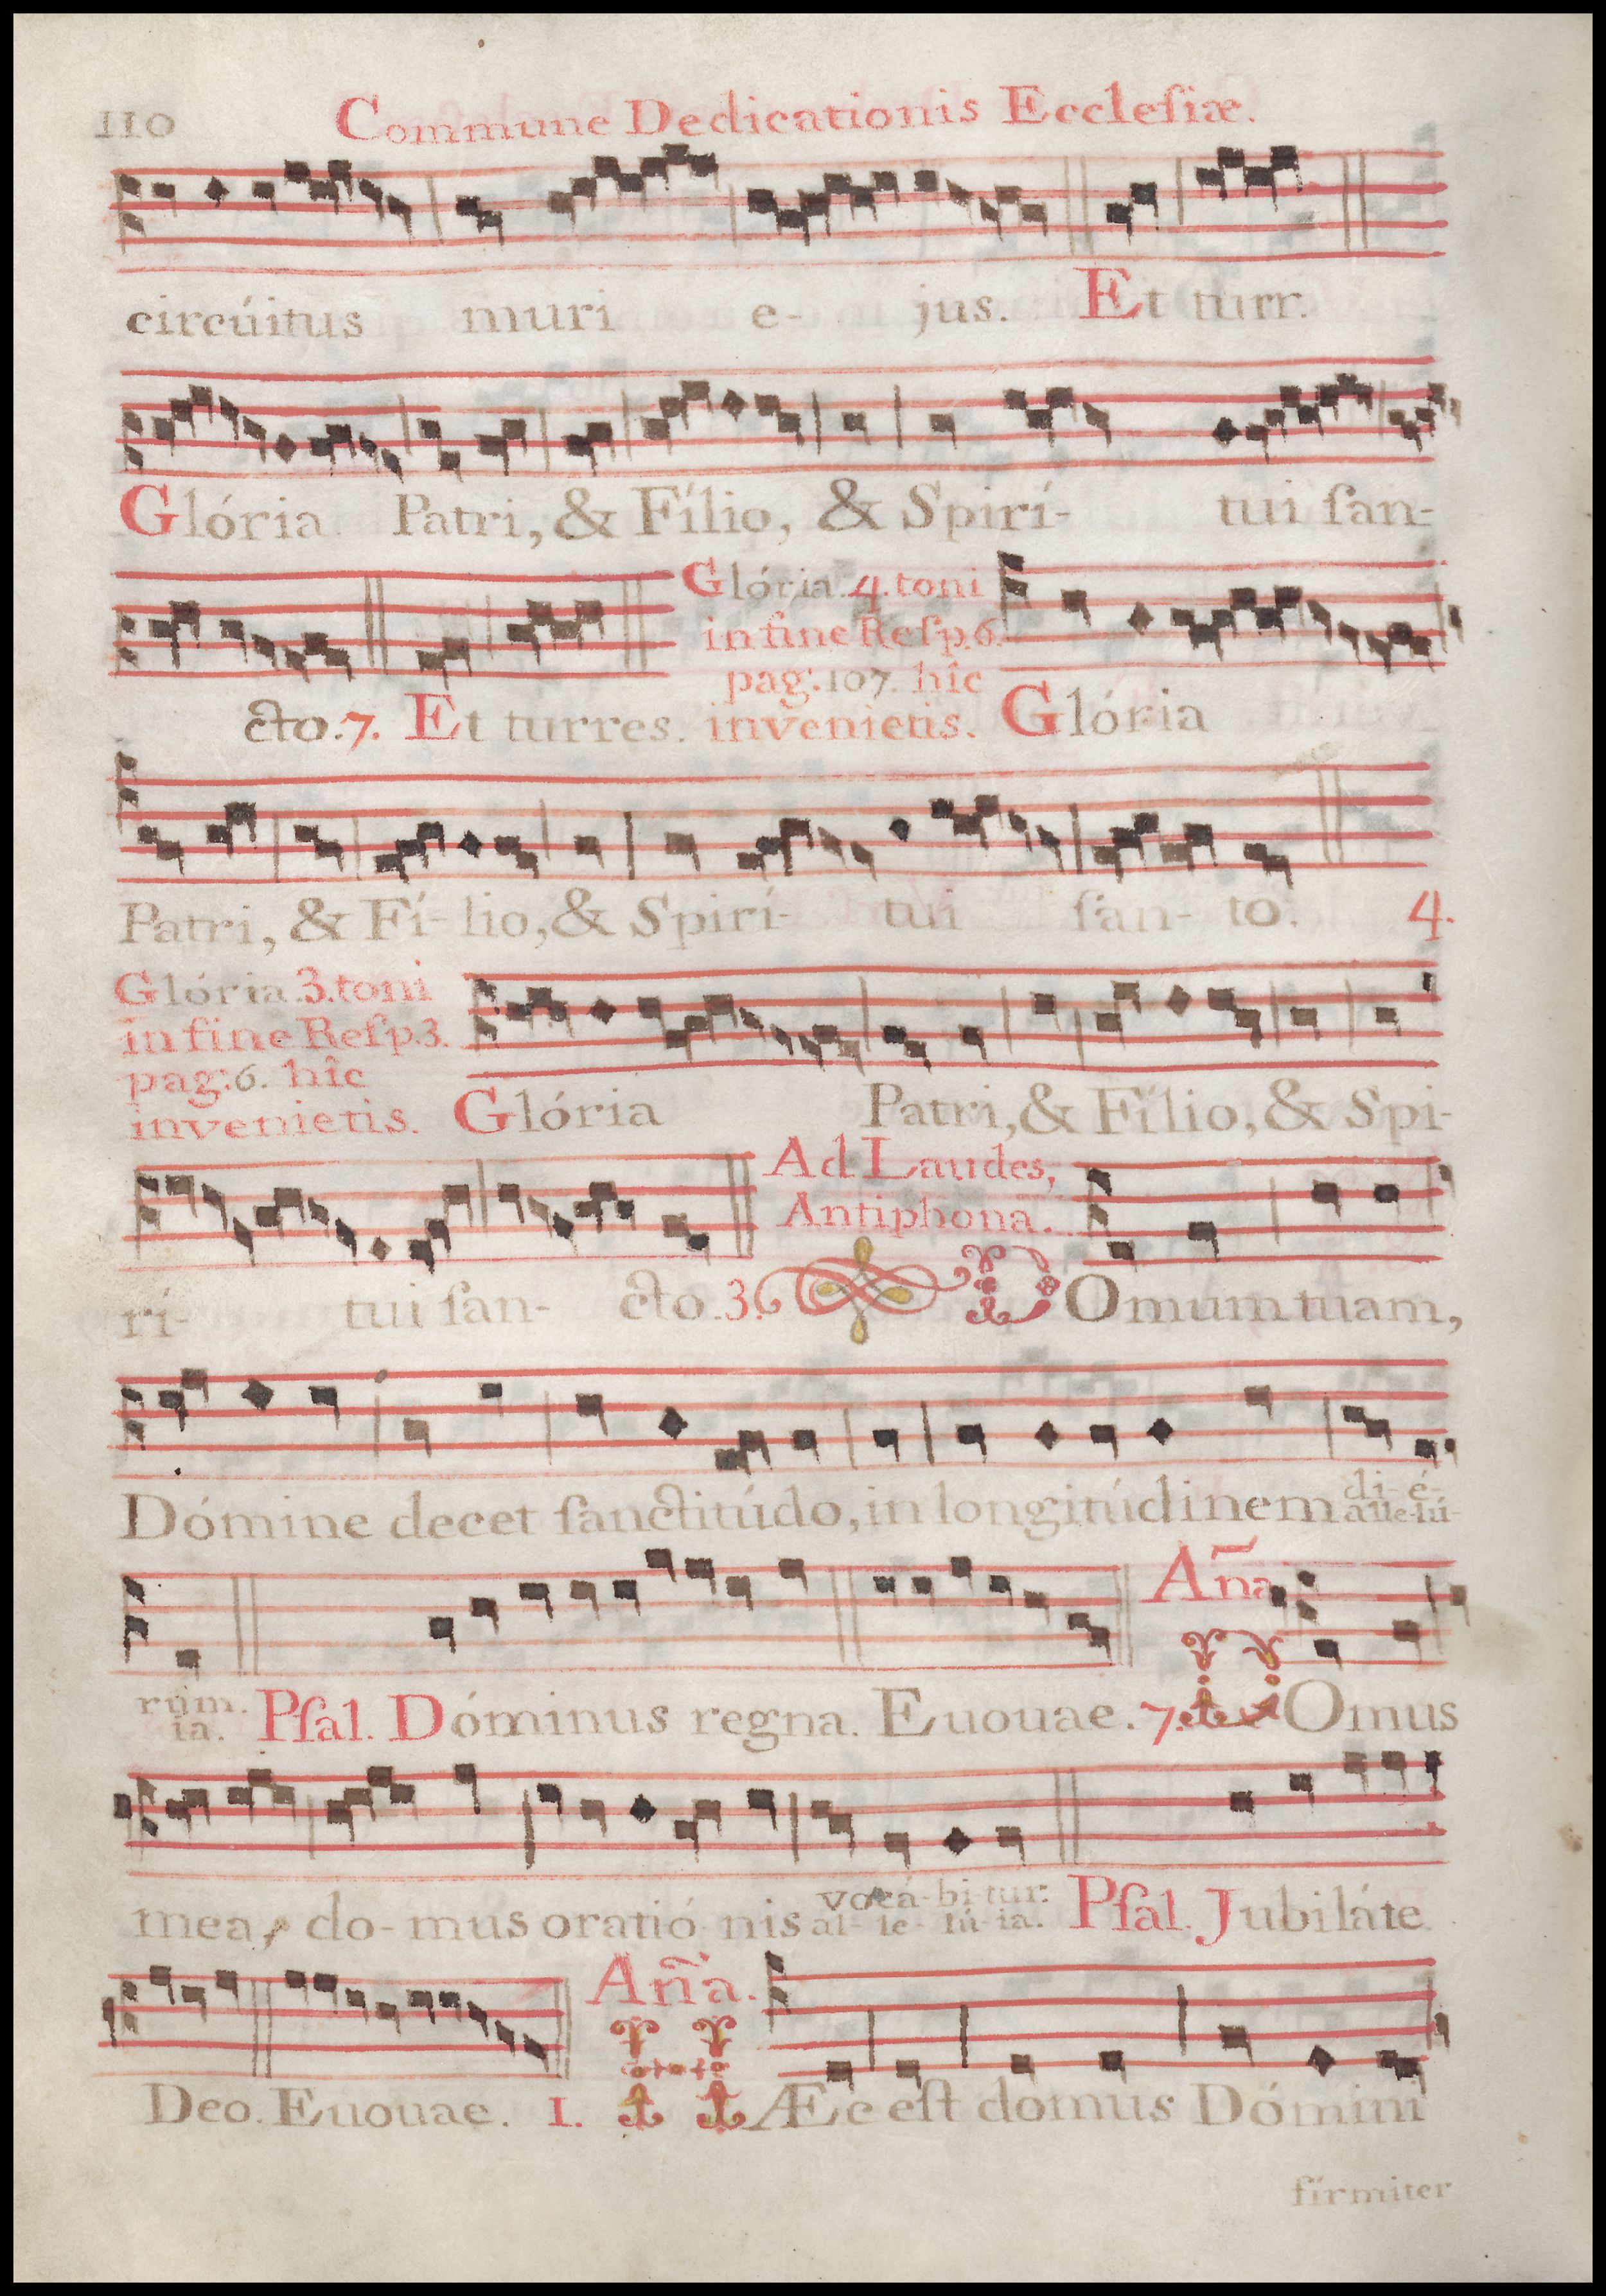 110 Commune Dedicationis Eccleſiæ.
circúitus muri e- jus. Et turr.
Glória Patri, & Fílio, & Spirí- tui ſan-
cto. 7. Et turres. Glória. 4. toni
in fine Reſp. 6.
pag: 107. hîc
invenietis. Glória
Patri, & Fí- lio, & Spirí- tui ſan- to. 4.
Glória. 3. toni
in fine Reſp. 3.
pag: 6. hîc
invenietis. Glória Patri, & Fílio, & Spi-
rí- tui ſan- cto. 3. Ad Laudes,
Antiphona. DOmum tuam,
Dómine decet ſanctitúdo, in longitúdinem di- é-
alle-lú-
rum.
ia. Pſal. Dóminus regna. Euouae. 7. Aña DOmus
mea, do- mus oratió nis vocá- bi- tur:
al- le- lú- ia. Pſal. Jubiláte
Deo. Euouae. 1. Aña. HÆc eſt domus Dómini
firmiter